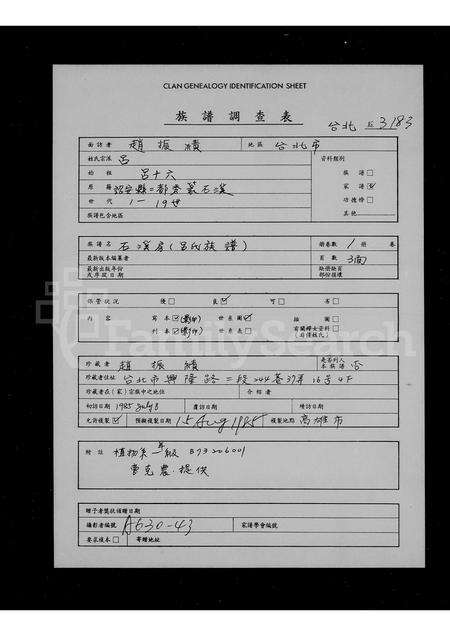 CLAN GENEALOGY IDENTIFICATION SHEET
族譜調查表
台北 3183
面訪者 趙振績 地區 台北市
姓氏宗派 呂 資料類別
始祖 呂十六 族譜□
原籍 詔安縣二都秀篆石溪 家譜☑
世代 1-19世 功德榜□
族譜包含地區 其他
族譜名 石溪房(呂氏族譜) 冊卷數 1 冊 卷
最新版本編纂者 頁數 3面
最新出版年份或序跋日期 缺冊缺頁部份損壞
保管狀況 優□ 良☑ 可□ 劣□
內容 寫本☑(影印) 世系圖☑ 插圖□
刊本□(影印) 世系表□ 有關婦女資料□(非僅姓氏)
珍藏者 趙振績 是否列入本族譜 否
珍藏者住址 台北市興隆路二段244巷 16号4F
珍藏者在(家)宗族中之地位 介紹者
初訪日期 1985 覆訪日期 續訪日期
允許複製☑ 預擬複製日期 15 Aug 1985 複製地點 高雄市
附註 植物系一年級 B73206001
曹克農 提供
贈予者獎狀頒贈日期
攝影者編號 A630-43 家譜學會編號
要求樣本□ 寄贈地址
FamilySearch